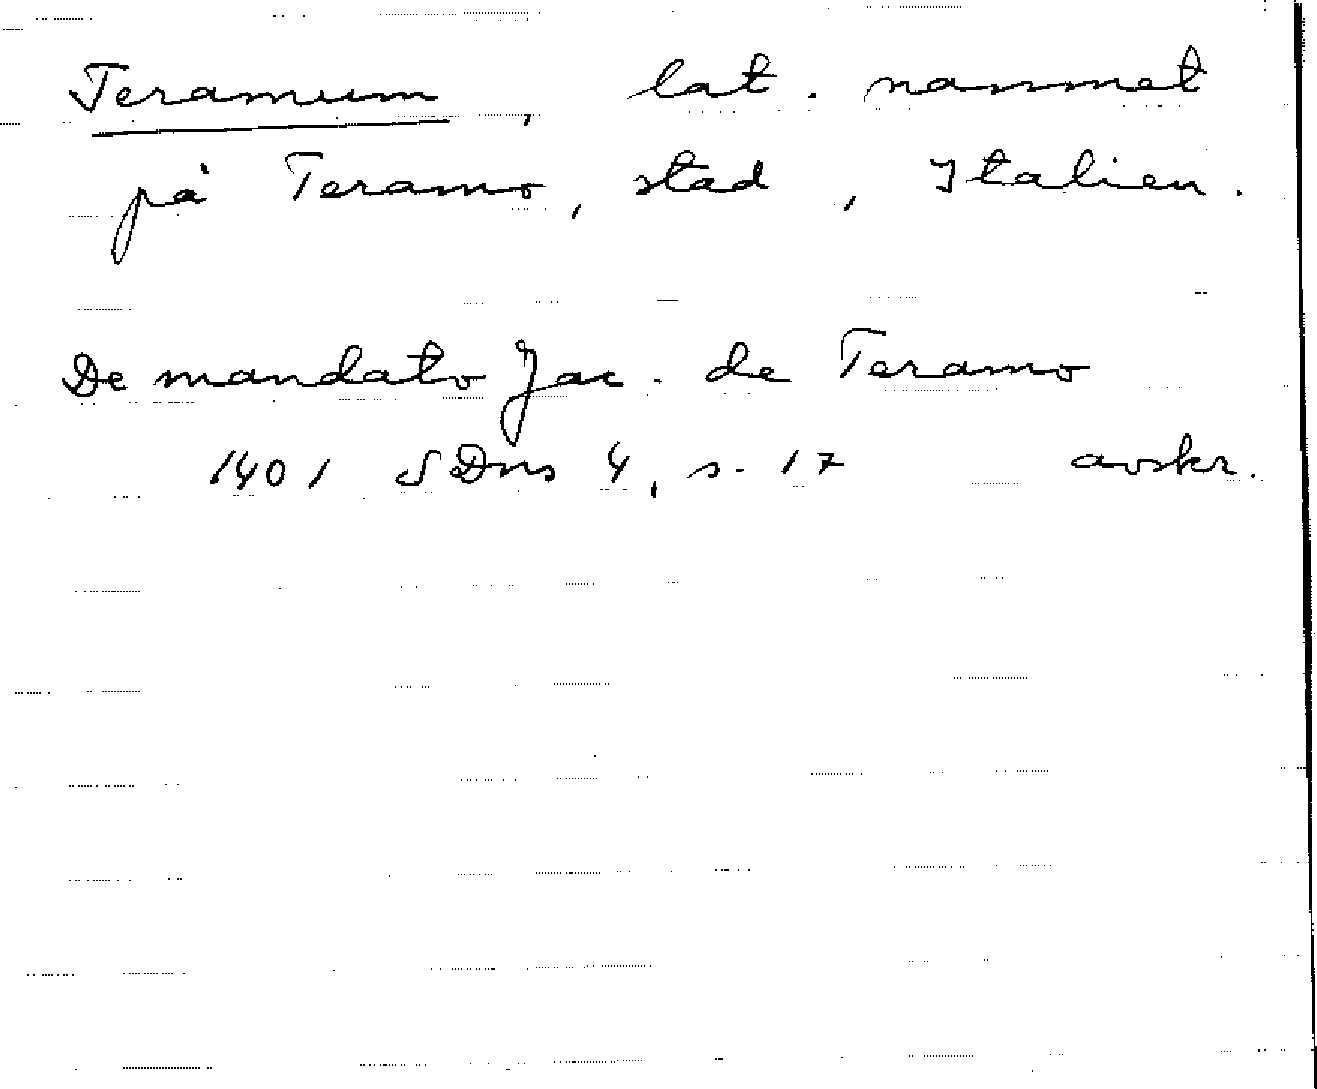 Teramum, lat. namnet
på Teramo, stad, Italien.
De mandato Jac. de Teramo
1401 SDns 4, s. 17 avskr.